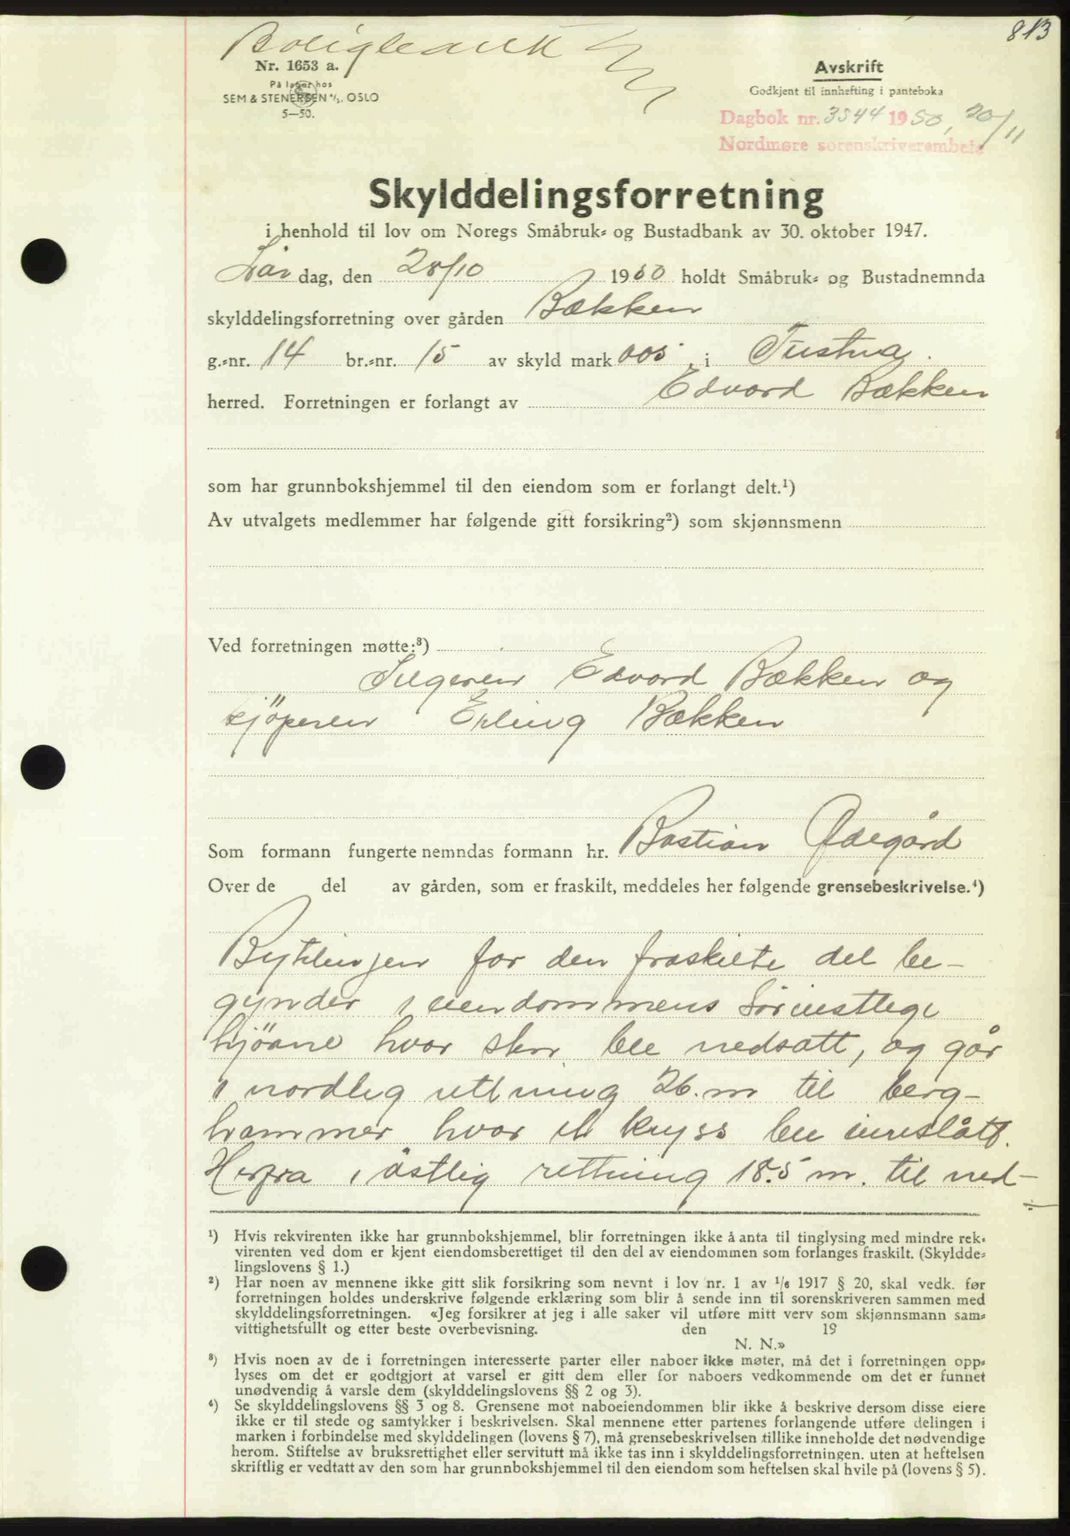 813
Boligbank
Nr. 1653 a.
På lager hos
SEM & STENERSEN A/S. OSLO
5—50.
Avskrift
Godkjent til innhefting i panteboka
Dagbok nr. 3544 1950, 20/11
Nordmøre sorenskriverembete
Skylddelingsforretning
i henhold til lov om Noregs Småbruk- og Bustadbank av 30. oktober 1947.
Lør dag, den 28/10 1950 holdt Småbruk- og Bustadnemnda
skylddelingsforretning over gården Bækken
g.-nr. 14 br.-nr. 15 av skyld mark 005 i Tustna.
herred. Forretningen er forlangt av Edvard Bækken
som har grunnbokshjemmel til den eiendom som er forlangt delt.¹)
Av utvalgets medlemmer har følgende gitt forsikring²) som skjønnsmenn
Ved forretningen møtte:³)
Selgeren Edvard Bækken og
kjöperen Erling Bækken
Som formann fungerte nemndas formann hr. Bastian Ødegård
Over de del av gården, som er fraskilt, meddeles her følgende grensebeskrivelse.⁴)
for den fraskilte del be-
gynder i eiendommens
hjörne hvor sten ble nedsatt, og går
i nordlig rettning 26.m til berg-
hammer hvor et kryss ble innslått.
Herfra i östlig rettning 18.5 m. til ned-
¹) Hvis rekvirenten ikke har grunnbokshjemmel, blir forretningen ikke å anta til tinglysing med mindre rek-
virenten ved dom er kjent eiendomsberettiget til den del av eiendommen som forlanges fraskilt. (Skyldde-
lingslovens § 1.)
²) Har noen av mennene ikke gitt slik forsikring som nevnt i lov nr. 1 av 1/6 1917 § 20, skal vedk. før
forretningen holdes underskrive følgende erklæring som blir å sende inn til sorenskriveren sammen med
skylddelingsforretningen. «Jeg forsikrer at jeg i alle saker vil utføre mitt verv som skjønnsmann sam-
vittighetsfullt og etter beste overbevisning. den 19
N. N.»
³) Hvis noen av de i forretningen interesserte parter eller naboer ikke møter, må det i forretningen opp-
lyses om det er godtgjort at varsel er gitt dem eller for naboers vedkommende om det er funnet
unødvendig å varsle dem (skylddelingslovens §§ 2 og 3).
⁴) Se skylddelingslovens §§ 3 og 8. Grensene mot naboeiendommen blir ikke å beskrive dersom disse eiere
ikke er til stede og samtykker i beskrivelsen. Skal mennene etter partenes forlangende utføre delingen i
marken i forbindelse med skylddelingen (lovens § 7), må grensebeskrivelsen tillike inneholde det nødvendige
herom. Stiftelse av bruksrettighet eller servitutt må ikke tas inn i skylddelingsforretningen. uten at heftelsen
skriftlig er vedtatt av den som har grunnbokshjemmel til den eiendom som heftelsen skal hvile på (lovens § 5).